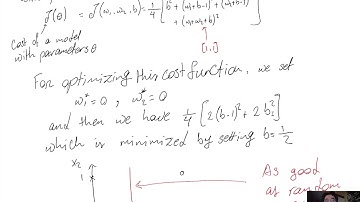 J(θ) = J(w₁, w₂, b) = 1/4 [b² + (w₂+b-1)² + (w₁+b-1)²
+ (w₁+w₂+b)²]
Cost of a model
with parameters θ
[1,1]
For optimizing this cost function, we set
w₁* = 0 , w₂* = 0
and then we have 1/4 [2(b-1)² + 2b²]
which is minimized by setting b = 1/2
x₂
1
0
As good
as random